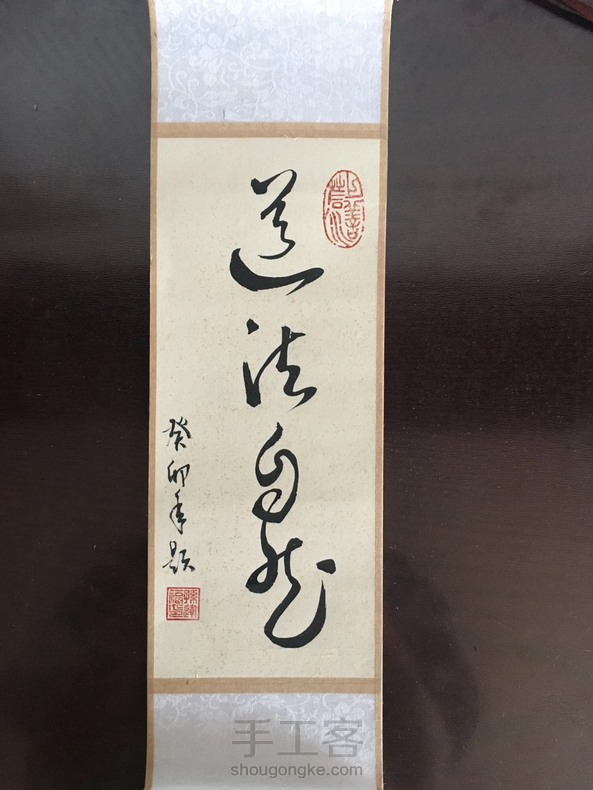 道法自然
癸卯年题
手工客
shougongke.com